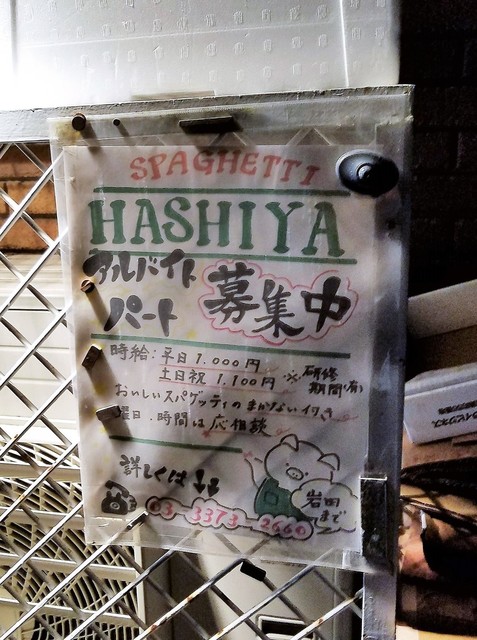 SPAGHETTI
HASHIYA
アルバイト
パート
募集中
時給:平日 1.000円
土日祝 1.100円
※研修
期間(有)
おいしいスパゲッティのまかない付き
曜日.時間は応相談
詳しくは↓↓
岩田
まで
03-3373-2660